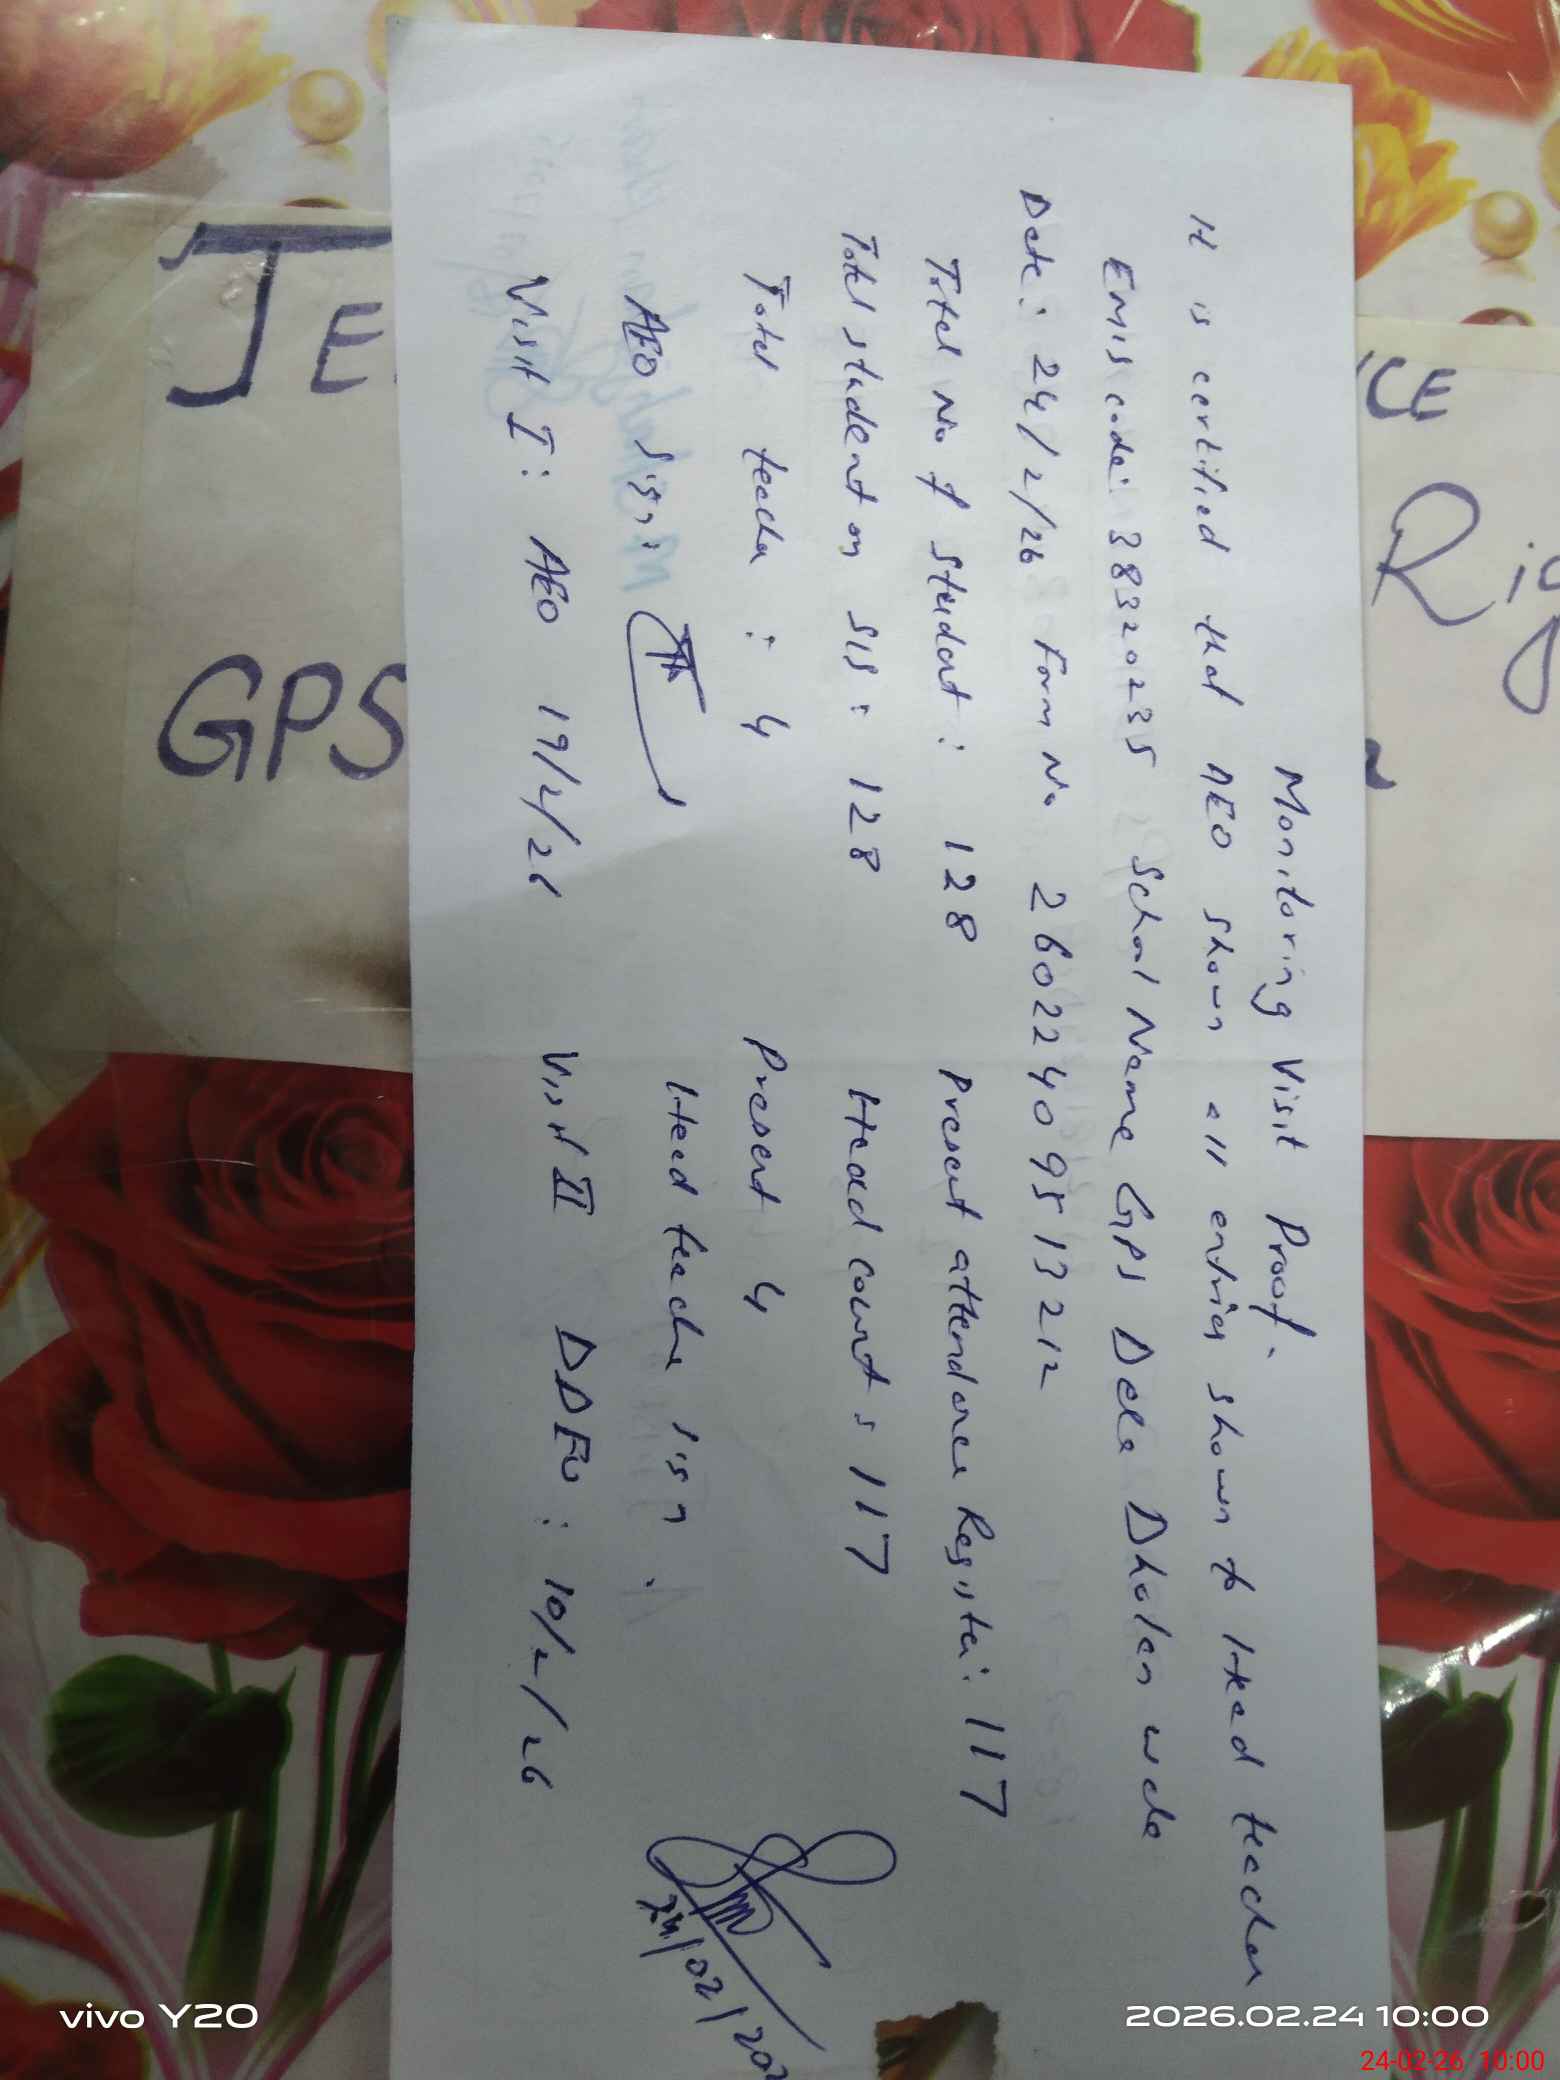 Monitoring Visit Proof.
It is certified that AEO shown all entries shown to Head teacher
Emis code: 38320235 School Name GPS Dela Dholan wala
Date: 24/2/26 Form No 26022409513212
Total No of student: 128 Present attendance Register: 117
Total student on SIS: 128 Head count: 117
Total teacher: 4 Present 4
AEO sign: Head teache sign.
Visit I: AEO 19/2/26 Visit II DDEO: 10/2/26
24/02/202
JE
GPS
CE
Rig
vivo Y20
2026.02.24 10:00
24-02-26 10:00